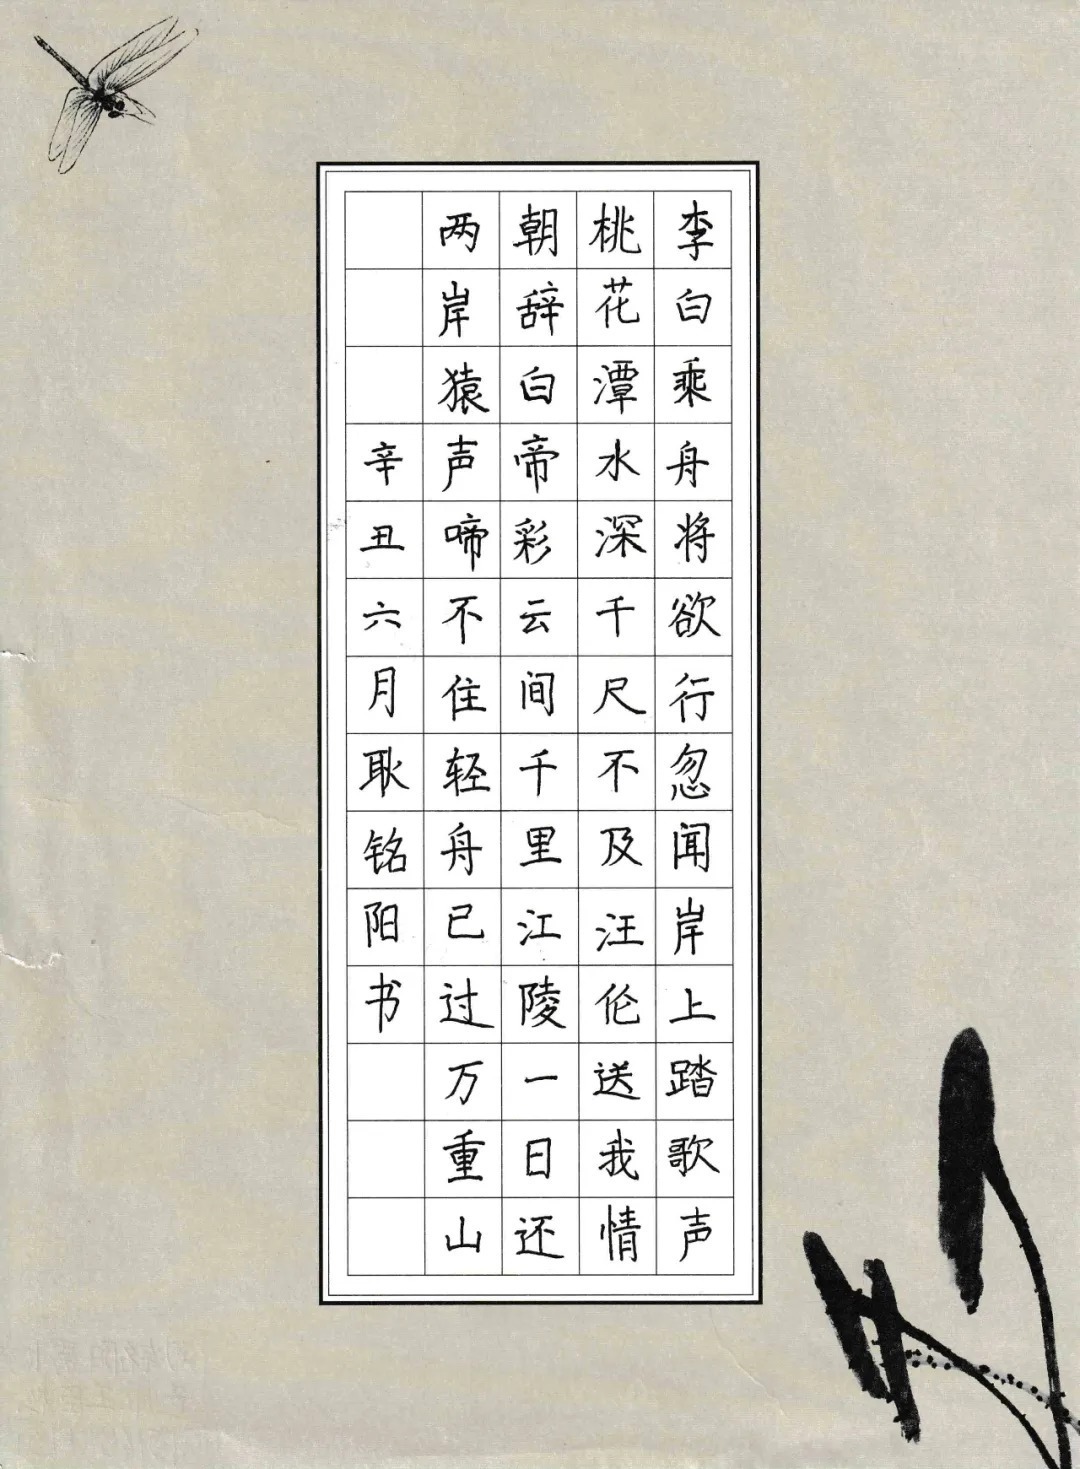 李白乘舟将欲行忽闻岸上踏歌声
桃花潭水深千尺不及汪伦送我情
朝辞白帝彩云间千里江陵一日还
两岸猿声啼不住轻舟已过万重山
辛丑六月耿铭阳书